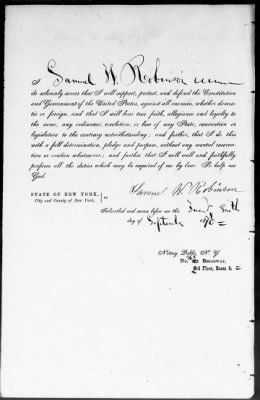 I Samuel W. Robinson
do solemnly swear that I will support, protect, and defend the Constitution
and Government of the United States, against all enemies, whether domes-
tic or foreign, and that I will bear true faith, allegiance and loyalty to
the same, any ordinance, resolution, or law of any State, convention or
legislature to the contrary notwithstanding; and further, that I do this
with a full determination, pledge and purpose, without any mental reserva-
tion or evasion whatsoever; and further that I will well and faithfully
perform all the duties which may be required of me by law: So help me
God.
Samuel W Robinson
STATE OF NEW YORK,
City and County of New York. } ss
Subscribed and sworn before me this
day of September
Notary Public, N. Y.
No. BROADWAY,
3rd Floor, Room